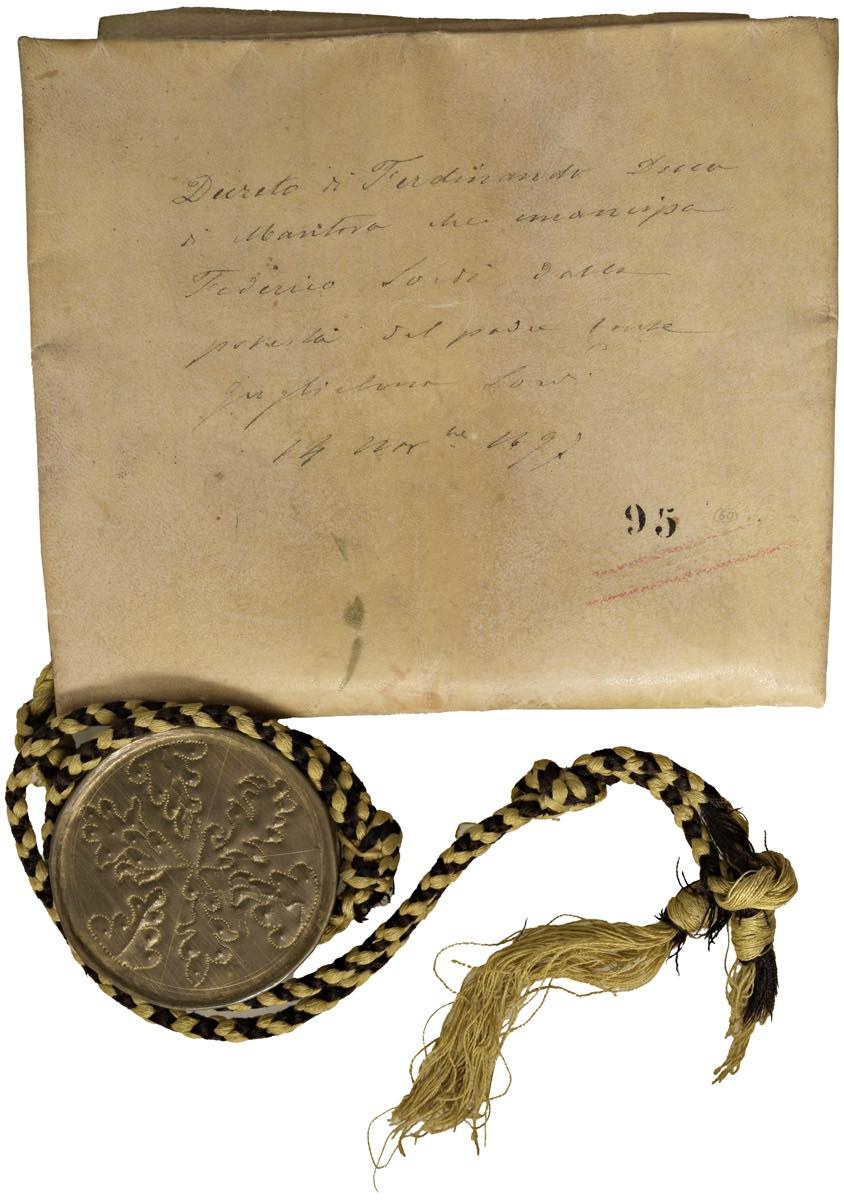 Decreto di Ferdinando Duca
di Mantova che emancipa
Federico Sordi dalla
potestà del padre Conte
Guglielmo Sordi
14 Nov.bre
95